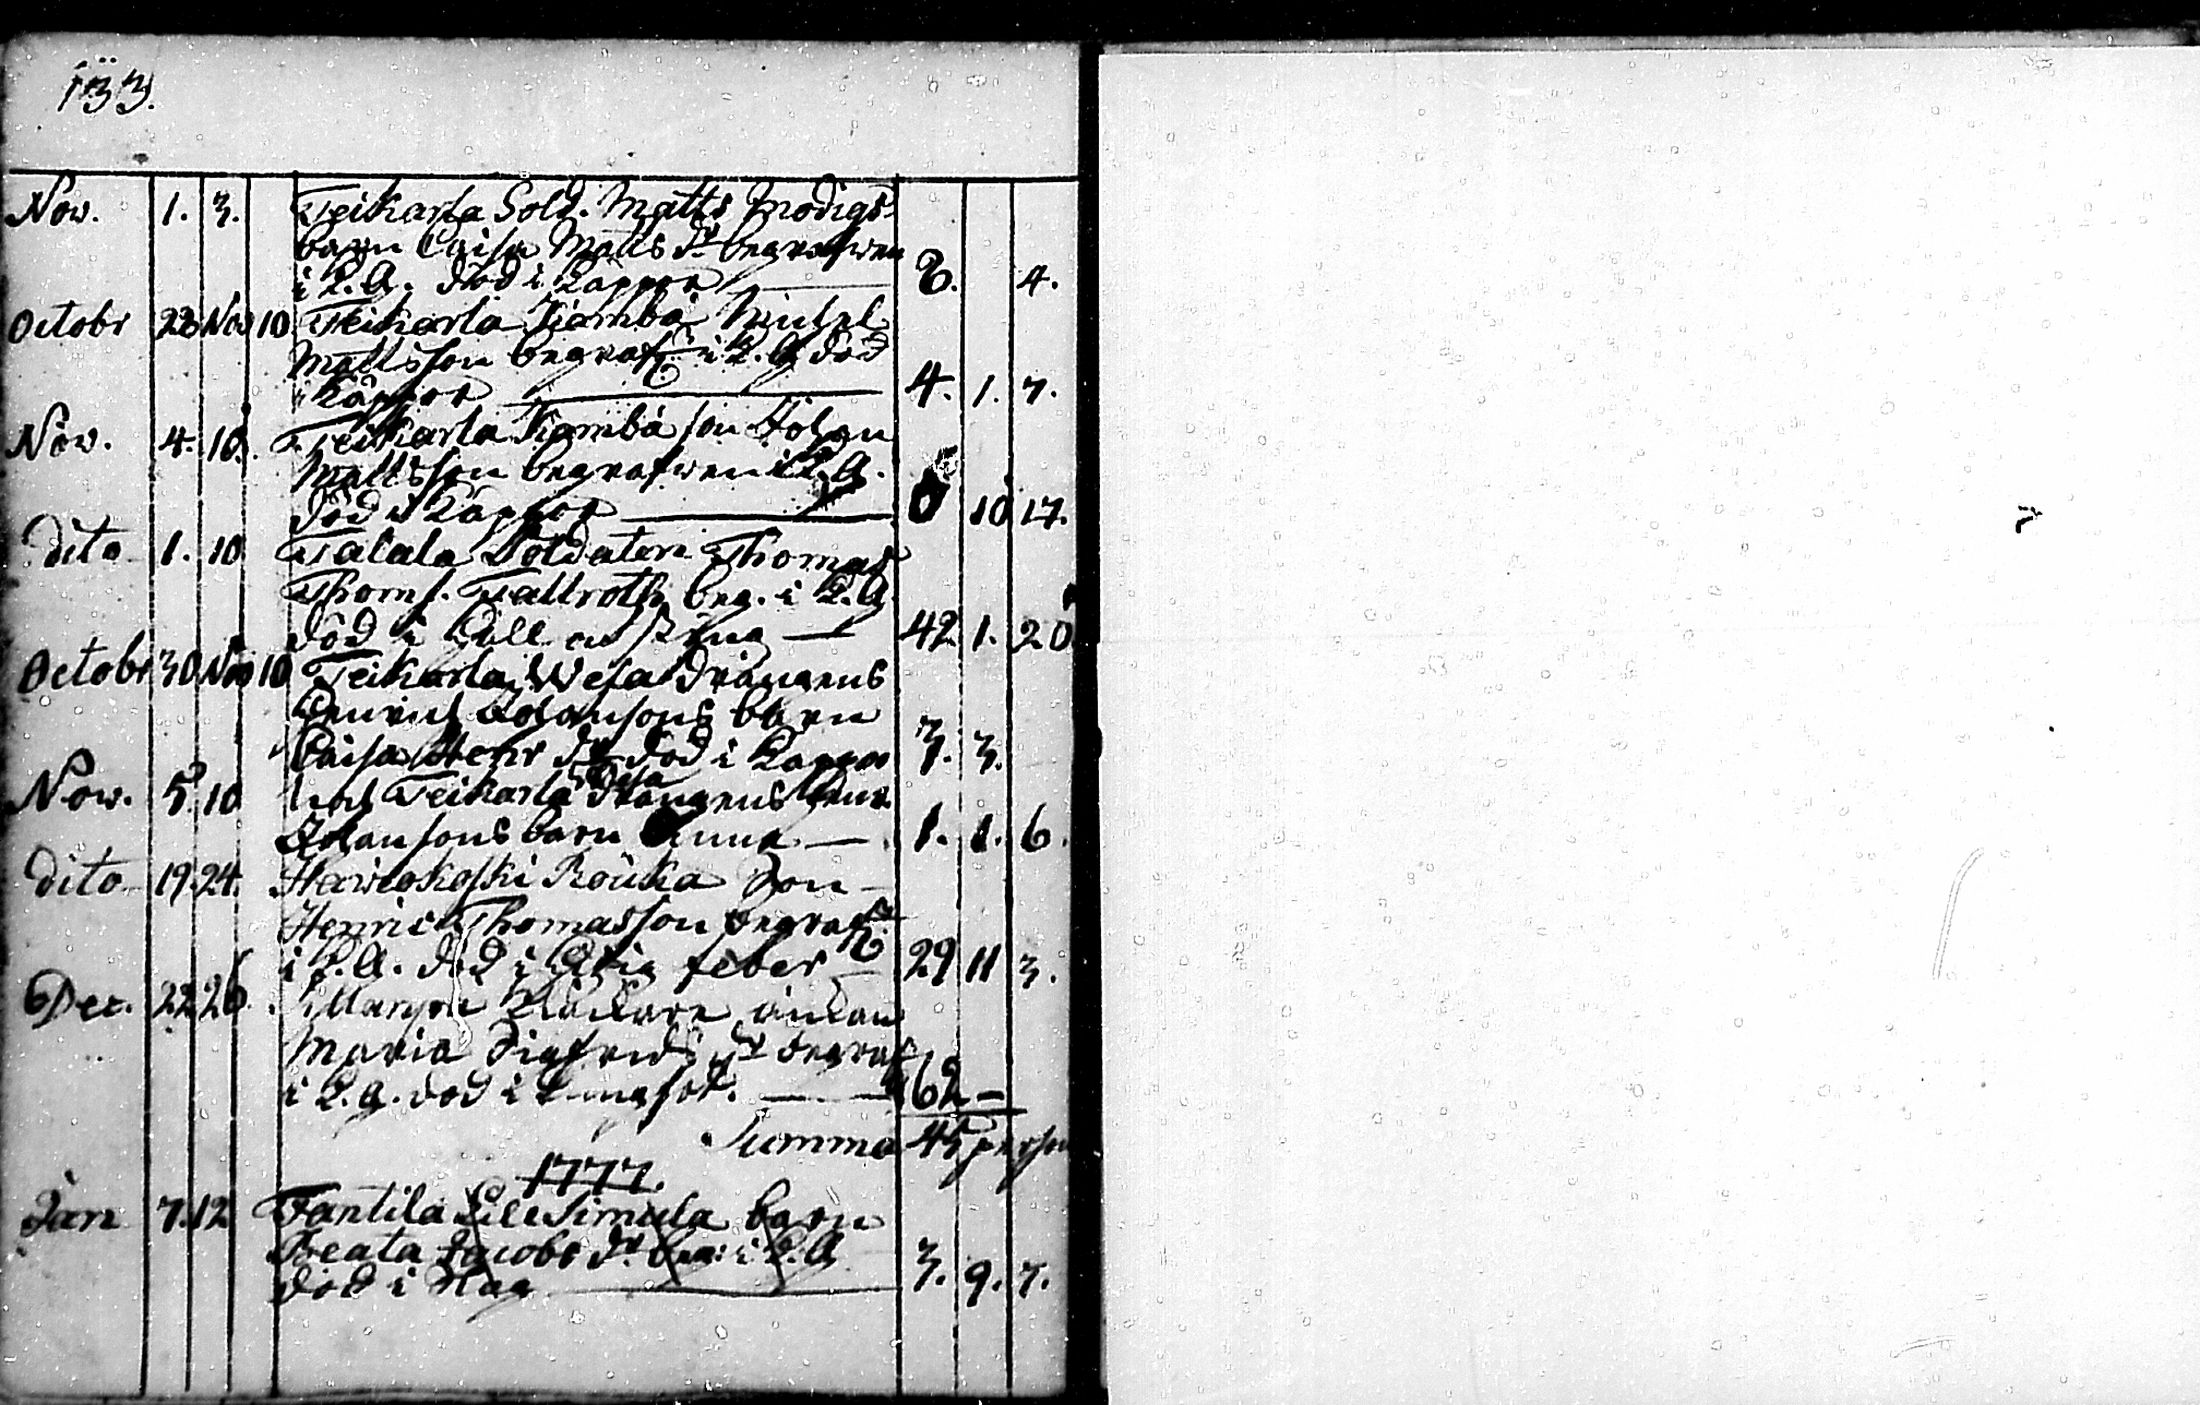 133.
Nov. 1. 3. Teikarla Sold. Matts Modigs
barn Caisa Matts dr begrafwen
i K.G. död i Kåppor 6. 4.
Octobr 23 Nov 10 Teikarla Kiambå Michel
Mattsson begrafn i K.G död
i Kåppor 4. 1. 7.
Nov. 4. 10. Teikarla Kiambå son Johan
Mattsson begrafwen i K.G.
död i Kåppor 0 10 17.
Dito 1. 10 Talala Soldaten Thomas
Thoms. Tallroth beg. i K.G.
död i Håll och styng 42 1. 20
Octobr 30 Nov 10 Teikarla Wesa drängens
Henrich Johansons barn
Caisa Henr dr död i Kåppor 3. 3.
Nov. 5 10 och Teikarla Wesa drängens Henr.
Johansons barn Anna 1. 1. 6.
Dito 19. 24. Hawiokoski Rouka Son
Henric Thomasson begrafn
i K.G. död i Hitzig feber 29 11 3.
Dec. 22 26. Klåckare änkan
Maria Sigfrids dr begraf
i K.G. död i 62 -
Summa 45 person
1777.
Jan 7. 12 Tantila Lill Simula barn
Beata Jacobs dr beg: i K.G
död i Mag 3. 9. 7.